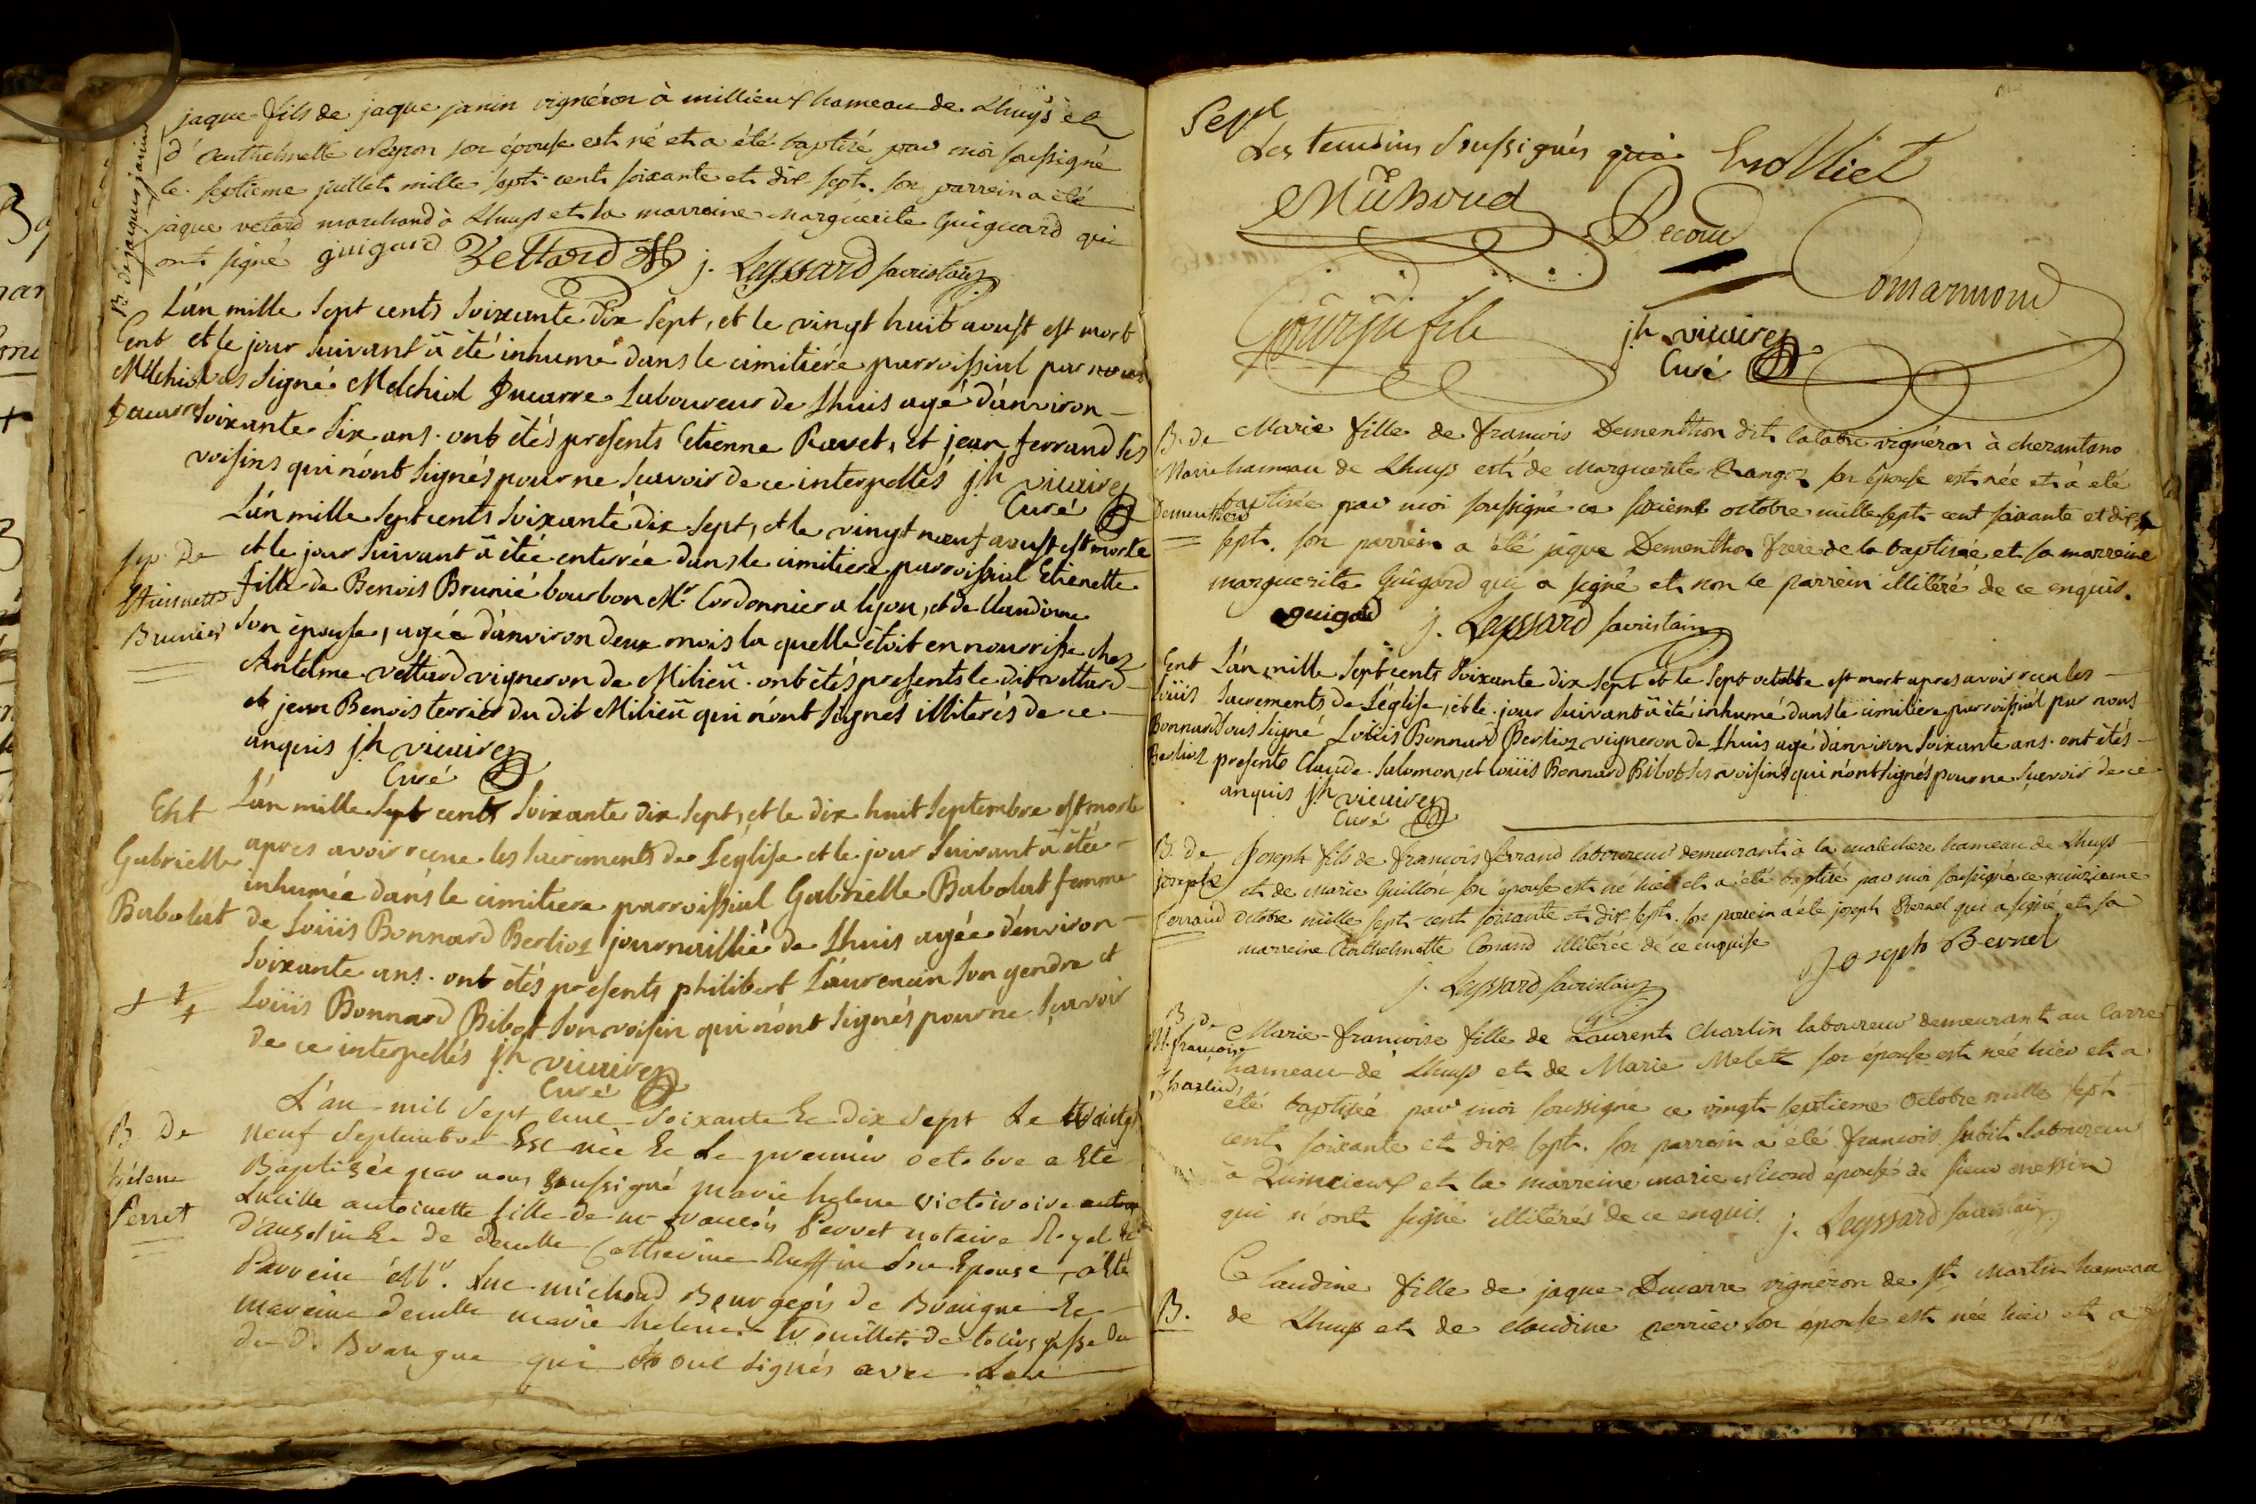 B. de jacques janin
jaque fils de jaque janin vignéron à millieux hameau de Lhuys et
d'Anthelmette son épouse est né et a été baptisé par moi soussigné
le septieme juillet mille sept cent soixante et dix sept. son parrein a été
jaque vetard marchand à Lhuys et la marreine marguerite Guiguard qui
ont signé guigard Vettard j. Leyssard sacristain
L'an mille sept cents soixante dix sept, et le vingt huit aoust est mort
Ent et le jour suivant a été inhumé dans le cimitiére parroissial par nous
Melchiol sous signé Melchiol Ducarre laboureur de Lhuis agé d'anviron
Ducarre soixante six ans. ont étés presents Etienne Ravet, et jean ferrand ses
voisins qui n'ont signés pour ne sçavoir de ce interpellés jh vicaire
Curé
L'an mille sept cents soixante dix sept, et le vingt neuf aoust est morte
sep. de et le jour suivant a étée enterrée dans le cimitiere parroissial Etienette
Etiennette fille de Benois Brunié bourbon Mr. Cordonnier a lyon, et de Claudine
Brunier son épouse, agée d'anviron deux mois la quelle étoit en nourrisse chez
Antelme vettard vigneron de Milieu. ont étés presents le dit vettard
et jean Benois terrier du dit Milieu qui n'ont signés illiterés de ce
anquis jh vicaire
Curé
Ent L'an mille sept cents soixante dix sept, et le dix huit septembre est morte
Gabrielle apres avoir recue les sacrements de L'église et le jour suivant a étée
inhumée dans le cimitiere parroissial Gabrielle Babolat femme
Babolat de Loüis Bonnard Berlioz journaillié de Lhuis agée d'environ
soixante ans. ont étés presents philibert Laurencin son gendre et
Loüis Bonnard Bibot son voisin qui n'ont signés pour ne sçavoir
de ce interpellés jh vicaire
Curé
L'an mil sept cent soixante & dix sept le
B. De neuf septembre Est née & le premier octobre a Eté
hélene Baptisée par nous soussigné marie helene victoire
Perret Lucille antoinette fille de mr françois Perret notaire Royal &
& de demlle Catherine Ruffin son Epouse, a Eté
Parrein Mr. Luc michoud Bourgeois de Brangue &
mareine demlle marie helene Trouillet de
du d. Brangue qui ont signés avec
Sepr
Les temoins soussignés Trolliet
Michoud Decour
Comarmond
jh vicaire
Curé
B. de Marie fille de francois Dementhon dit vignéron à cherantano
Marie hameau de Lhuys est de Marguerite son épouse est née et a été
Dementhon baptisée par moi soussigné ce sixieme octobre mille sept cent soixante et dix
sept. son parrein a été jaque Dementhon frere de la baptisée et sa marreine
marguerite Guigard qui a signé et non le parrein illitéré de ce enquis.
guigard j. Leyssard sacristain
Ent L'an mille sept cents soixante dix sept et le sept octobre est mort apres avoir recu les
Louis sacrements de L'église, et le jour suivant a été inhumé dans le cimitiere parroissial par nous
Bonnard sous signé Loüis Bonnard Berlioz vigneron de Lhuis agé d'anviron soixante ans. ont étés
Berlioz presents Claude Salomon, et Loüis Bonnard Bibot ses voisins qui n'ont signés pour ne sçavoir de ce
anquis jh vicaire
Curé
B. de Joseph fils de francois ferrand laboureur demeurant à la malechere hameau de Lhuys
joseph et de marie Guillon son épouse est né hier et a été baptisé par moi soussigné ce quinzieme
ferrand octobre mille sept cent soixante et dix sept. son parrein a été joseph Bernel qui a signé et sa
marreine Anthelmette Conand illitérée de ce enquise
j. Leyssard sacristain Joseph Bernel
B. de Marie-francoise fille de Laurent Charlin laboureur demeurant au Carre
M. francoise hameau de Lhuys et de Marie Melet son épouse est née hier et a
Charlin été baptisée par moi soussigné ce vingt septieme Octobre mille sept
cent soixante et dix sept. son parrein a été francois subit laboureur
à et la marreine marie épouse de sieur
qui n'ont signé illitérés de ce enquis. j. Leyssard sacristain
Claudine fille de jaque Ducarre vignéron de st Martin hameau
B. de Lhuys et de claudine perrier son épouse est née hier et a